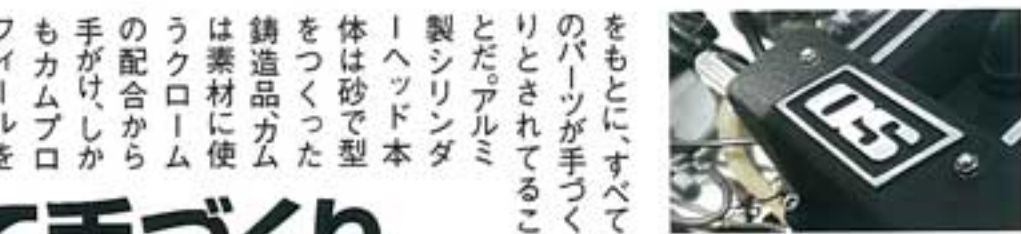 をもとに、すべて
のパーツが手づく
りとされてるこ
とだ。アルミ
製シリンダ
ーヘッド本
体は砂で型
をつくった
鋳造品、カム
は素材に使
うクローム
の配合から
手がけ、しか
もカムプロ
フィールを
て手づくり
OS